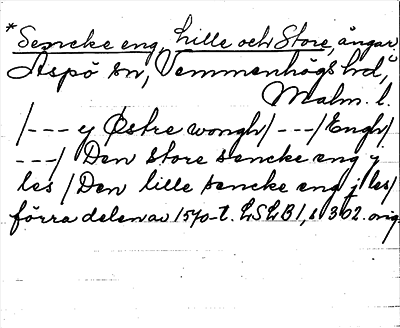 *Sencke eng, Lille och Store, ängar
Aspö sn, Vemmenhögs hd,
Malm. l.
/--- y Østre wongh/---/Engh/
---/ Den store sencke eng y
les/Den lille sencke eng j les/
förra delen av 1570-t. LSLB1, s 302. orig.